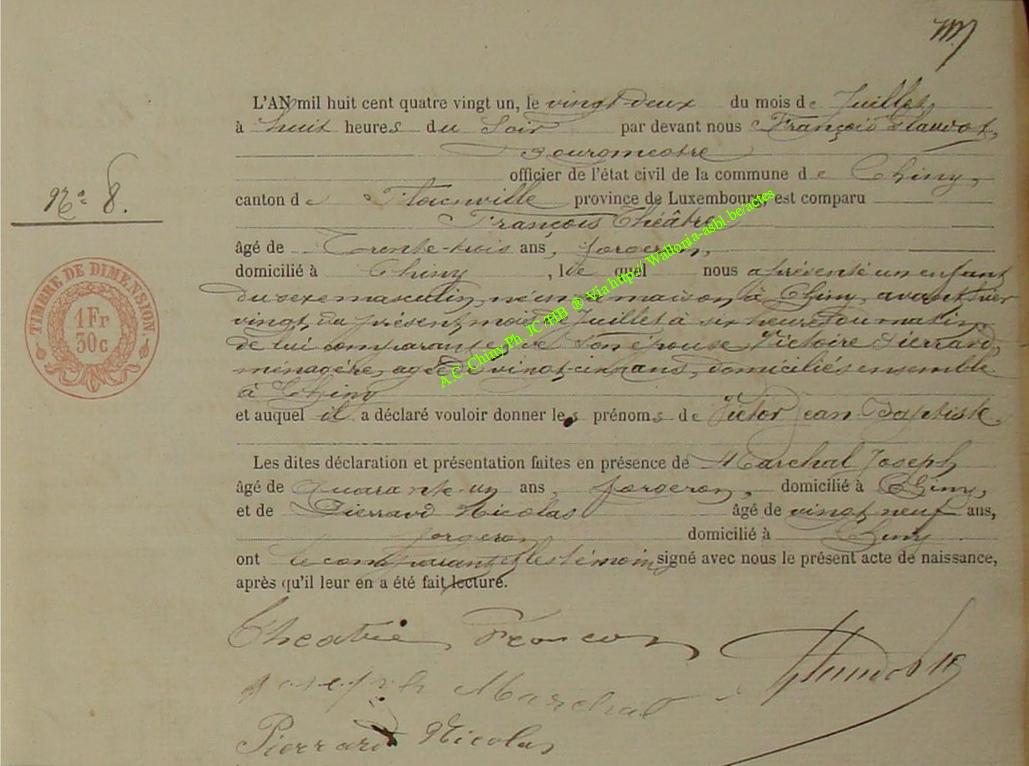 L'AN mil huit cent quatre vingt un, le vingt-deux du mois de Juillet,
à huit heures du Soir par devant nous François
Bourgmestre
officier de l'état civil de la commune de Chiny,
canton de Florenville province de Luxembourg, est comparu
François Théâtre
âgé de Trente-trois ans, forgeron,
domicilié à Chiny, lequel nous a présenté un enfant
du sexe masculin, né en sa maison, à Chiny, avant-hier
vingt du présent mois de Juillet à six heures du matin,
de lui comparant et de Son épouse Victoire Pierrard,
ménagère, agée de vingt-cinq ans, domiciliés ensemble
à Chiny
et auquel il a déclaré vouloir donner les prénoms de Victor Jean-Baptiste
Les dites déclaration et présentation faites en présence de Marchal Joseph
âgé de Quarante-un ans, forgeron, domicilié à Chiny,
et de Pierrard Nicolas âgé de vingt neuf ans,
forgeron domicilié à Chiny
ont le comparant et les témoins signé avec nous le présent acte de naissance,
après qu'il leur en a été fait lecture.
No 8.
TIMBRE DE DIMENSION
1 Fr
30 c
A.C. Chiny Ph. JC HB ® Via http// Wallonia-asbl.be/actes
Theatre François
Joseph Marchal
Pierrard Nicolas